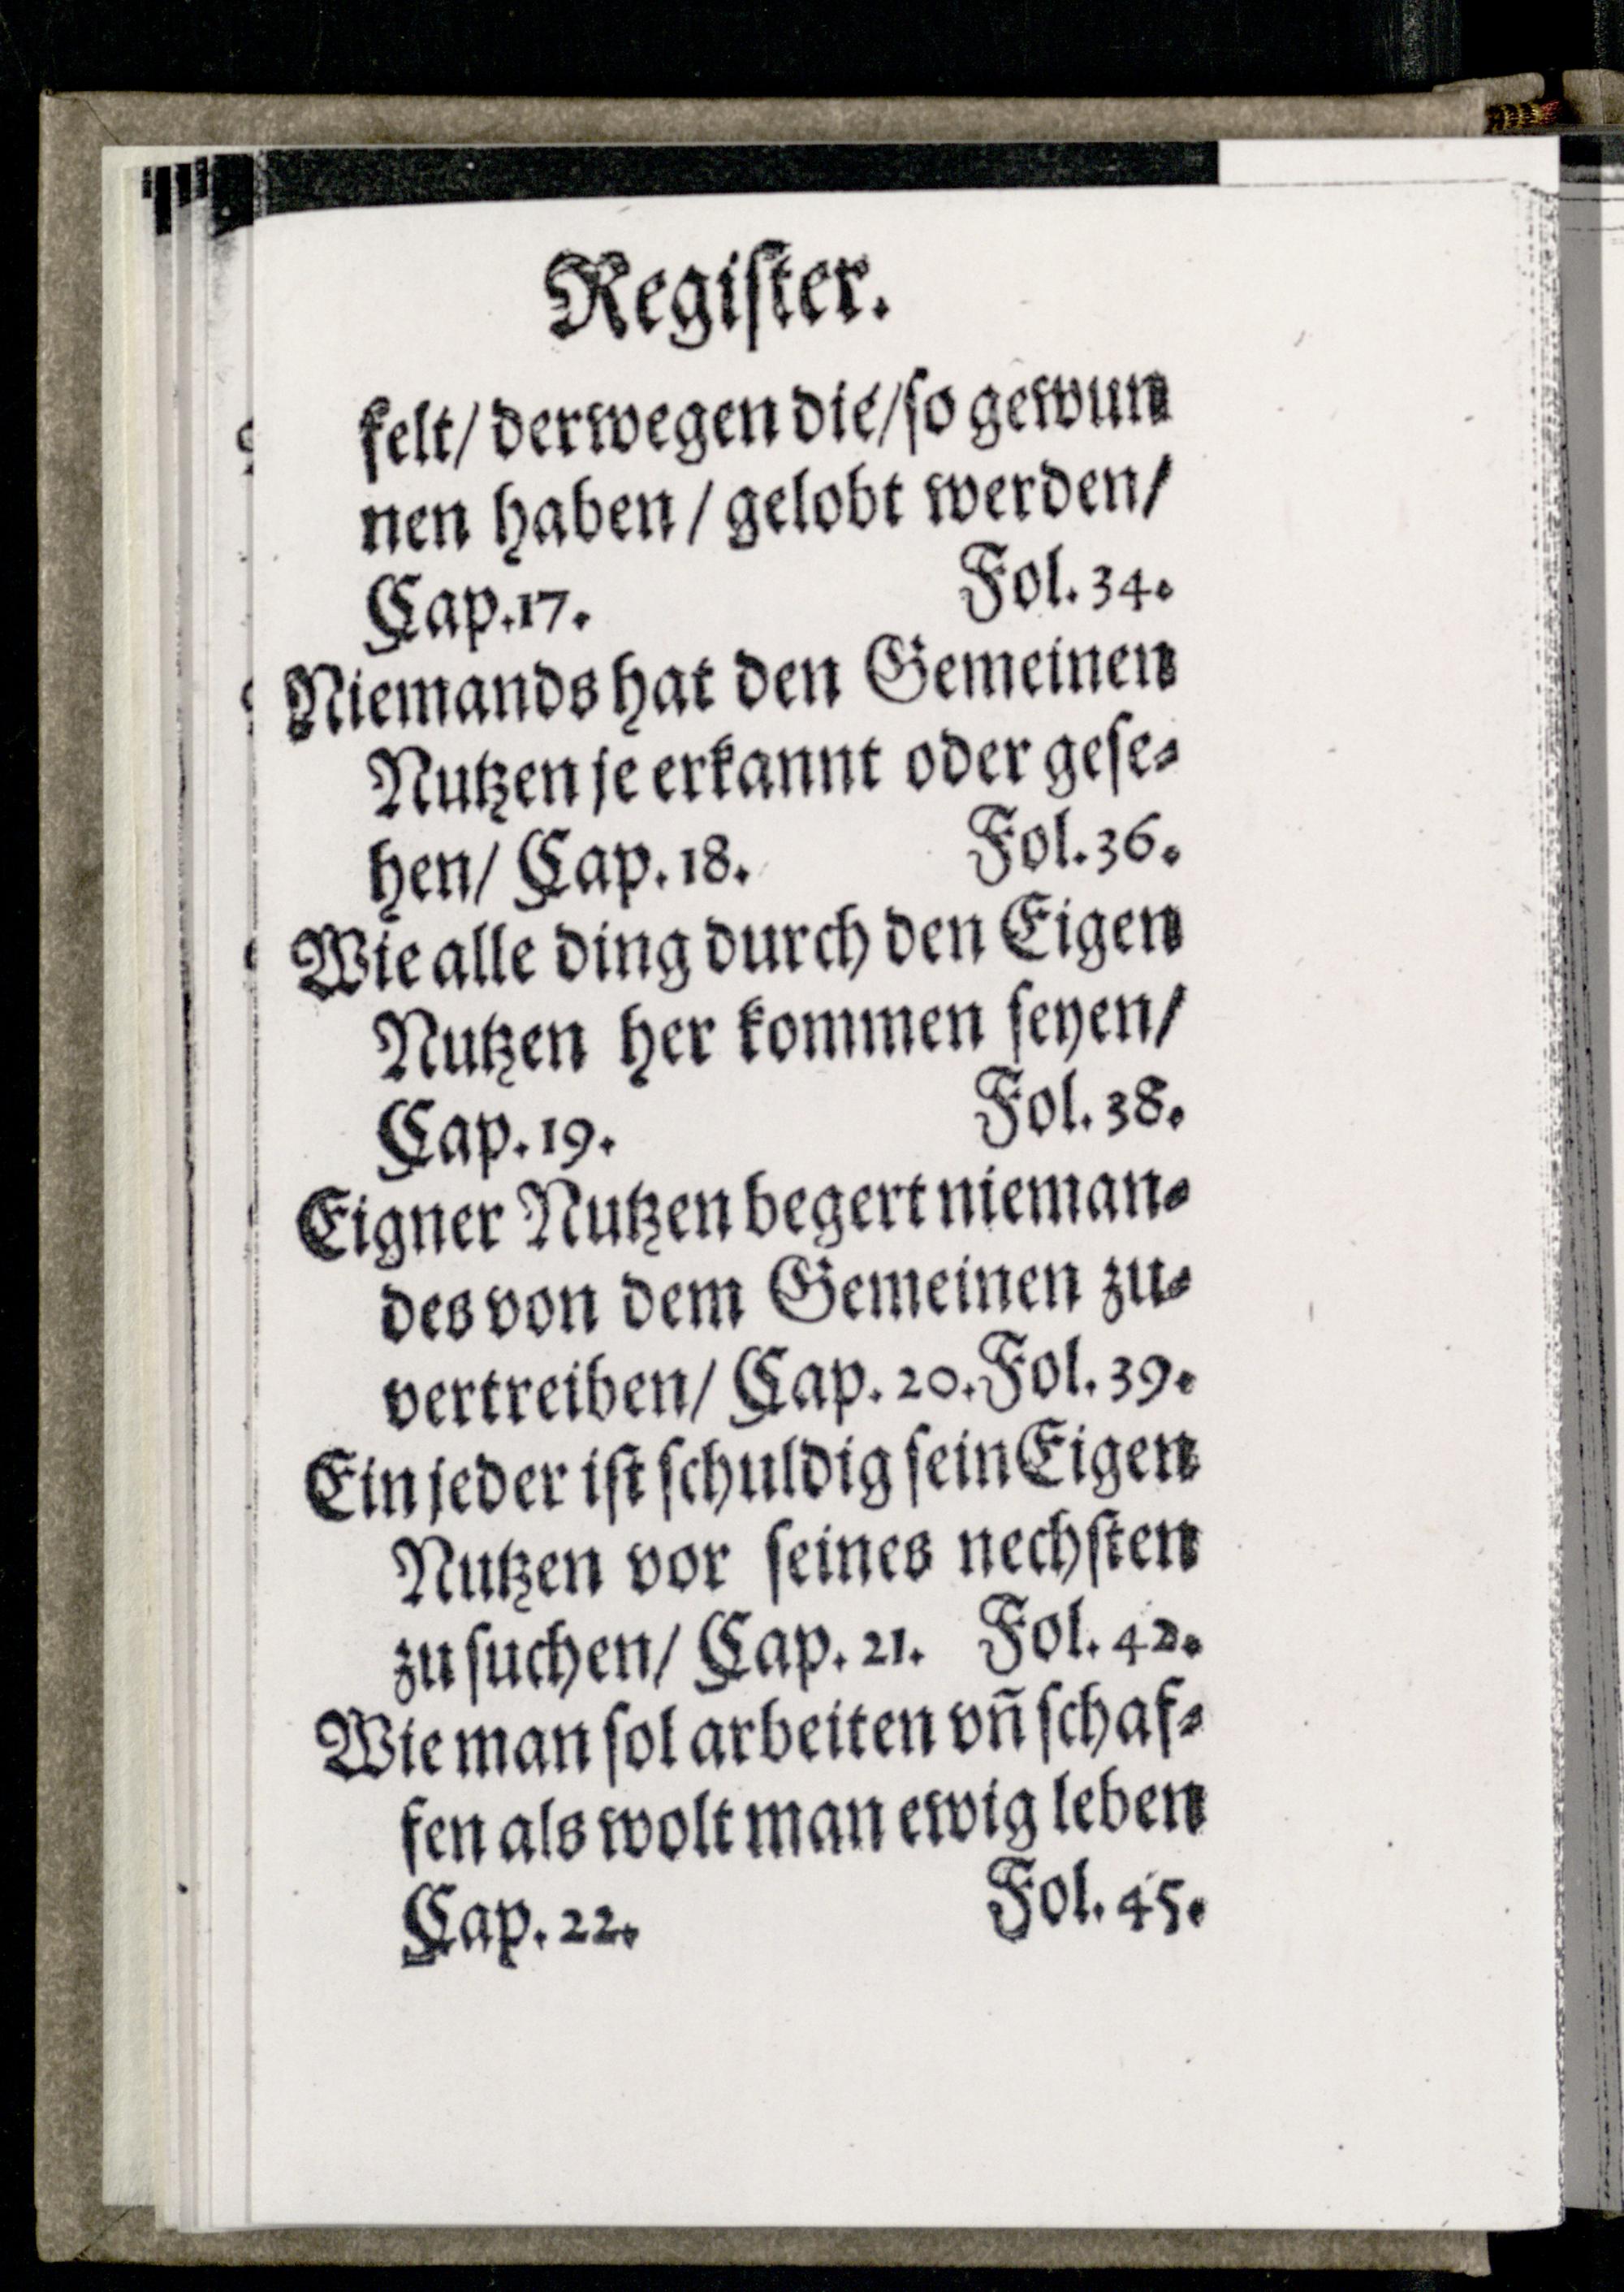 Regiſter.
kelt/ derwegen die/ ſo gewun
nen haben / gelobt werden/
Cap.17. Fol. 34.
Niemands hat den Gemeinen
Nutzen je erkannt oder geſe⸗
hen/ Cap. 18. Fol. 36.
Wie alle ding durch den Eigen
Nutzen her kommen ſeyen/
Cap. 19. Fol. 38.
Eigner Nutzen begert nieman⸗
des von dem Gemeinen zu⸗
vertreiben/ Cap. 20. Fol. 39.
Ein jeder iſt ſchuldig ſein Eigen
Nutzen vor ſeines nechſten
zu ſuchen/ Cap. 21. Fol. 42.
Wie man ſol arbeiten vñ ſchaf⸗
fen als wolt man ewig leben
Cap. 22. Fol. 45.